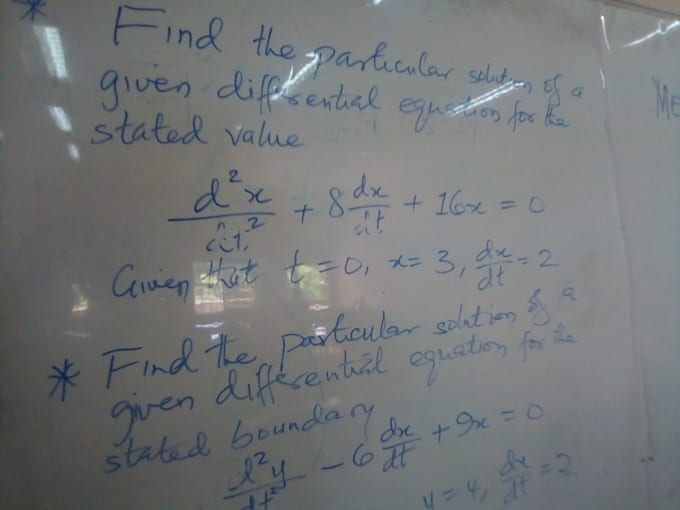 * Find the particular solution of a
given differential equation for the
stated value
d²x/dt² + 8 dx/dt + 16x = 0
Given that t = 0, x = 3, dx/dt = 2
* Find the particular solution of a
given differential equation for the
stated boundary
d²y/dt² - 6 dx/dt + 9x = 0
y = 4, dx/dt = 2